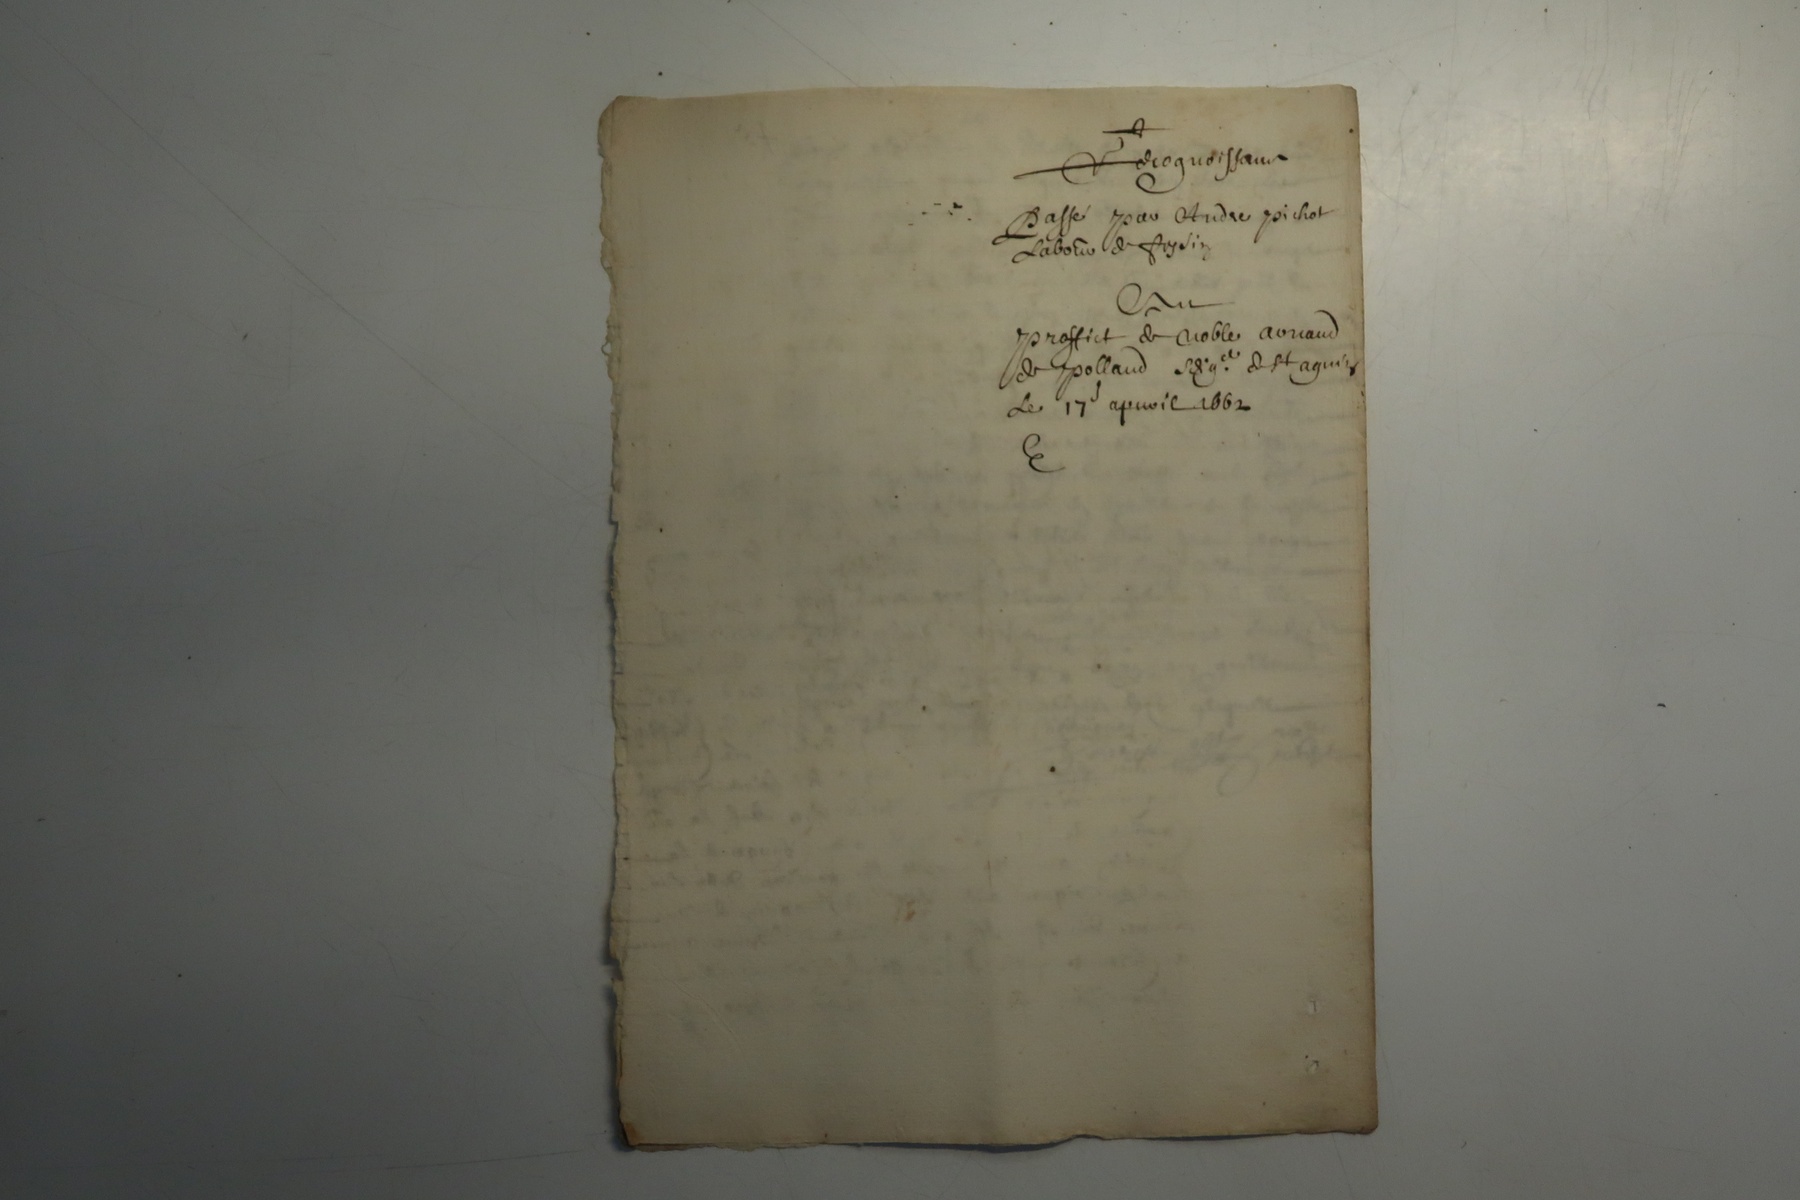 Recognoissance
Passé par Andre pichot
Labour de feysin
Au
proffict de noble arnaud
de polland Seigr de St agnin
Le 17e apvril 1662